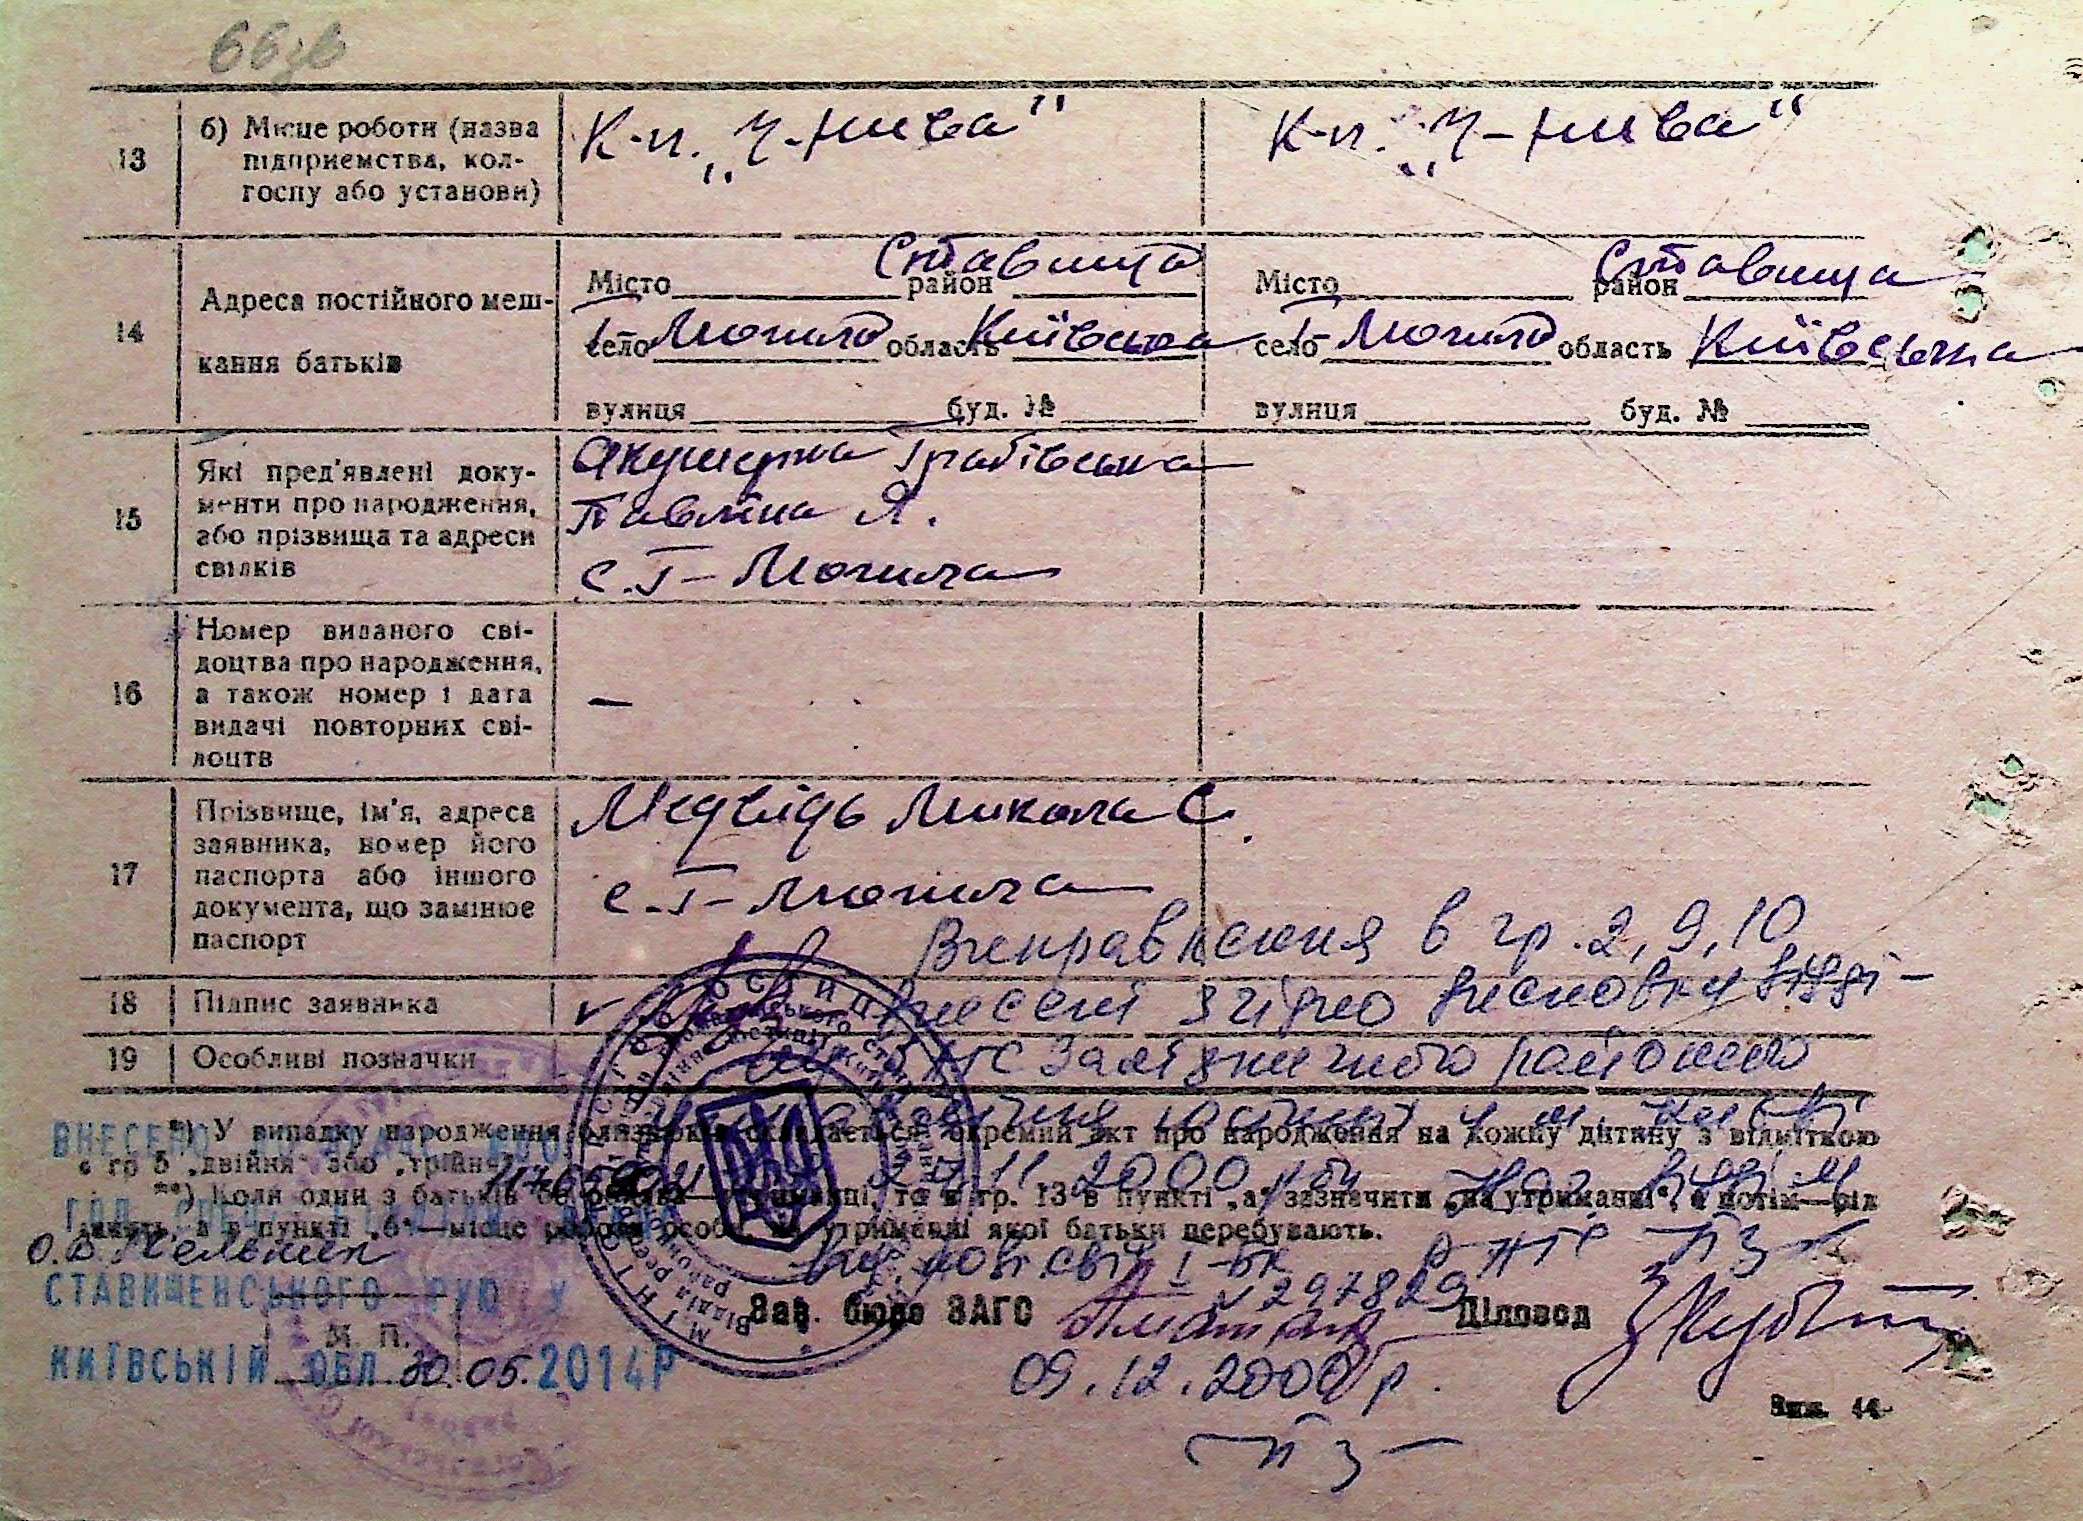 66зв
13
б) Місце роботи (назва
підприємства, кол-
госпу або установи)
К-п. „Ч-Нива"
К-п. „Ч-Нива"
14
Адреса постійного меш-
кання батьків
Місто район Ставища
село Г-Могила область Київська
вулиця буд. №
Місто район Ставища
село Г-Могила область Київська
вулиця буд. №
15
Які пред'явлені доку-
менти про народження,
або прізвища та адреси
свідків
Акушерка Грабівська
Павліна Я.
с. Г-Могила
16
Номер виданого сві-
доцтва про народження,
а також номер і дата
видачі повторних сві-
доцтв
—
17
Прізвище, ім'я, адреса
заявника, номер його
паспорта або іншого
документа, що замінює
паспорт
Медвідь Микола С.
с. Г-Могила
Виправлення в гр. 2, 9, 10
18
Підпис заявника
внесені згідно висновку відді-
19
Особливі позначки
ЗАГС Залізничного районного
управління юстиції у м. Києві
*) У випадку народження близнюків складається окремий акт про народження на кожну дитину з відміткою
в гр 5 „двійня" або „трійня".
27.11.2000 р. Нач. відділ
**) Коли один з батьків на утриманні, то в гр. 13 в пункті „а" зазначити „на утриманні", а потім—від
в пункті „б"—місце роботи особи, на утриманні якої батьки перебувають.
ВНЕСЕНО
О.В. Мельник
СТАВИЩЕНСЬКОГО РУЮ У
КИЇВСЬКІЙ ОБЛ 30.05.2014Р
М. П.
повт. свід. І-БК
№ 297829
Зав. бюро ЗАГС
Діловод
09.12.2000 р.